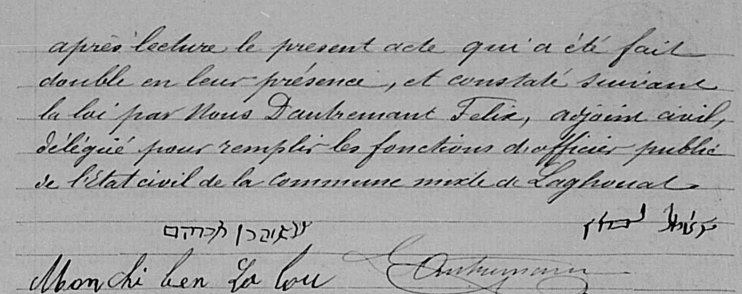 après lecture le present acte qui a été fait
double en leur présence, et constaté suivant
la loi par Nous Dautremant Felix, adjoint civil,
délégué pour remplir les fonctions d'officier public
de l'Etat civil de la commune mixte de Laghouat.
Monchi ben La lou Dautremant